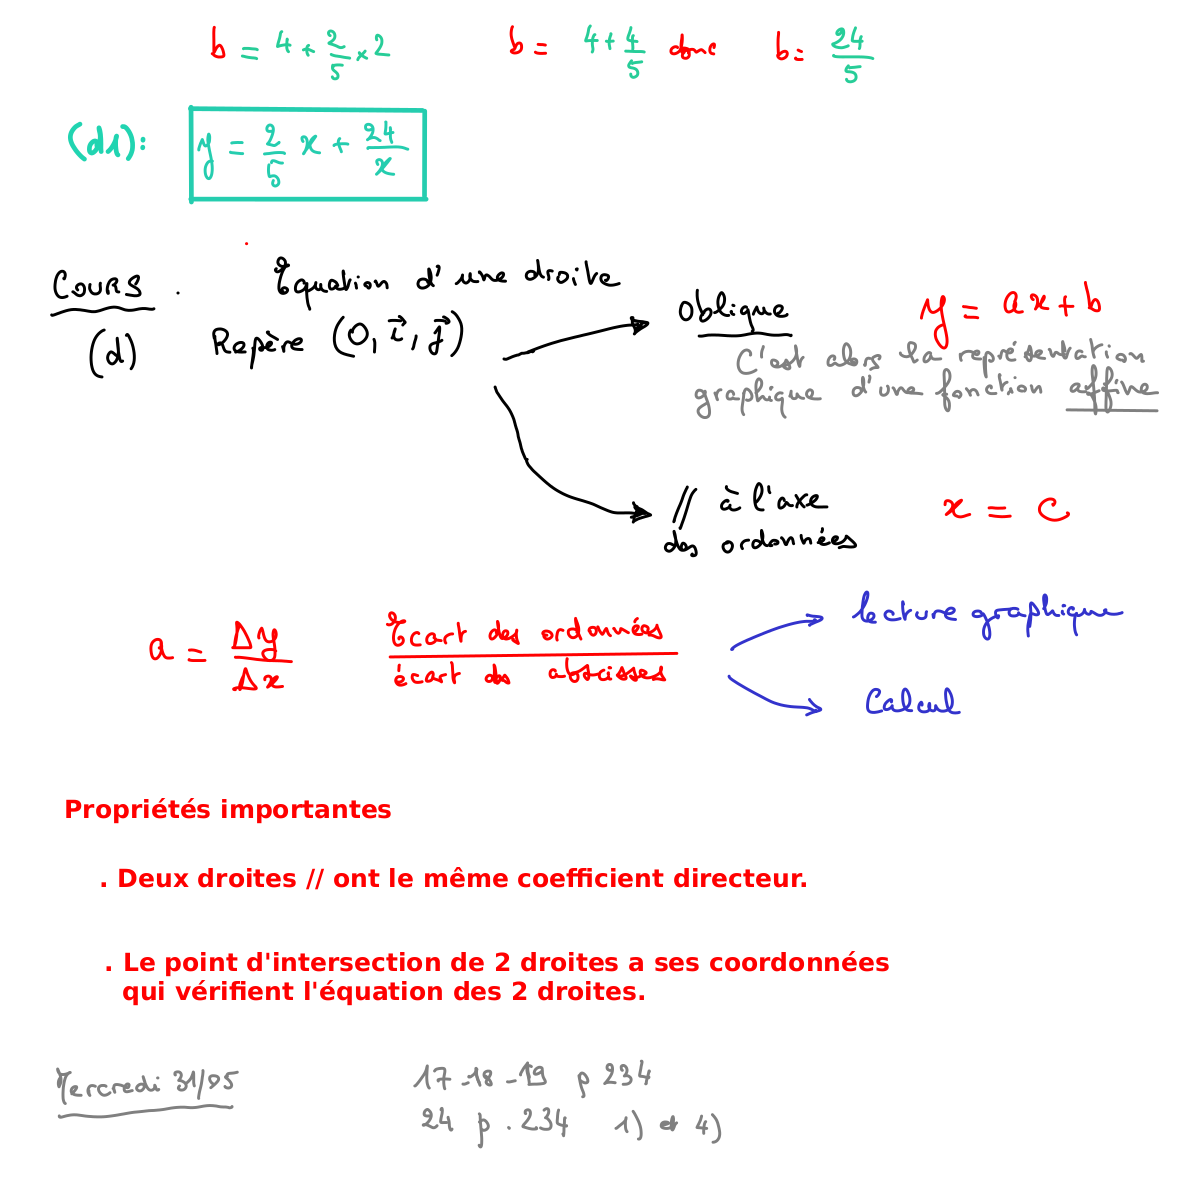 b = 4 + 2/5 × 2 b = 4 + 4/5 donc b = 24/5
(d1): y = 2/5 x + 24/x
Cours . Equation d'une droite
(d) Repère (O, i⃗, j⃗) Oblique y = ax + b
C'est alors la représentation
graphique d'une fonction affine
// à l'axe x = c
des ordonnées
lecture graphique
a = Δy/Δx Ecart des ordonnées
écart des abscisses
Calcul
Propriétés importantes
. Deux droites // ont le même coefficient directeur.
. Le point d'intersection de 2 droites a ses coordonnées
qui vérifient l'équation des 2 droites.
Mercredi 31/05 17 - 18 - 19 p 234
24 p . 234 1) et 4)